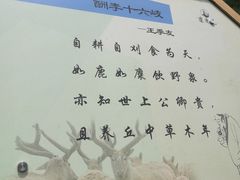 酬李十六岐
—王季友
自耕自刈食为天，
如鹿如麋饮野泉。
亦知世上公卿贵，
且养丘中草木年